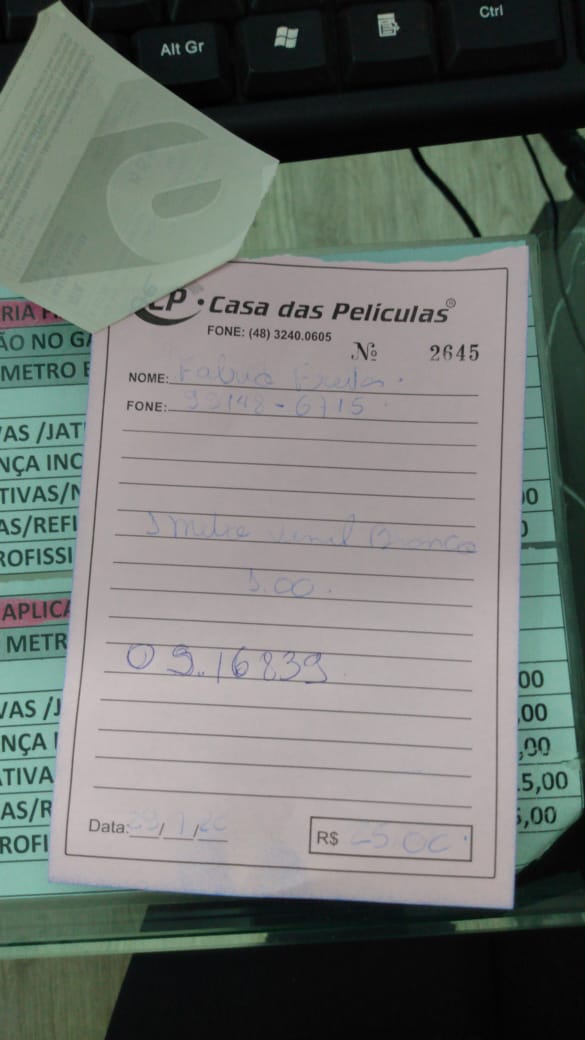 Alt Gr
Ctrl
CP · Casa das Películas®
FONE: (48) 3240.0605
Nº 2645
NOME: Fabio Freitas.
FONE: 99148-6715
1 metro vinil Branco
5.00.
09.16839
Data: 29/1/20
R$
RIA
ÃO NO GA
METRO
VAS /JAT
NÇA INC
TIVAS/N
AS/REFI
ROFISSI
APLICA
METR
VAS /J
NÇA
ATIVA
AS/R
ROFI
00
,00
,00
5,00
5,00